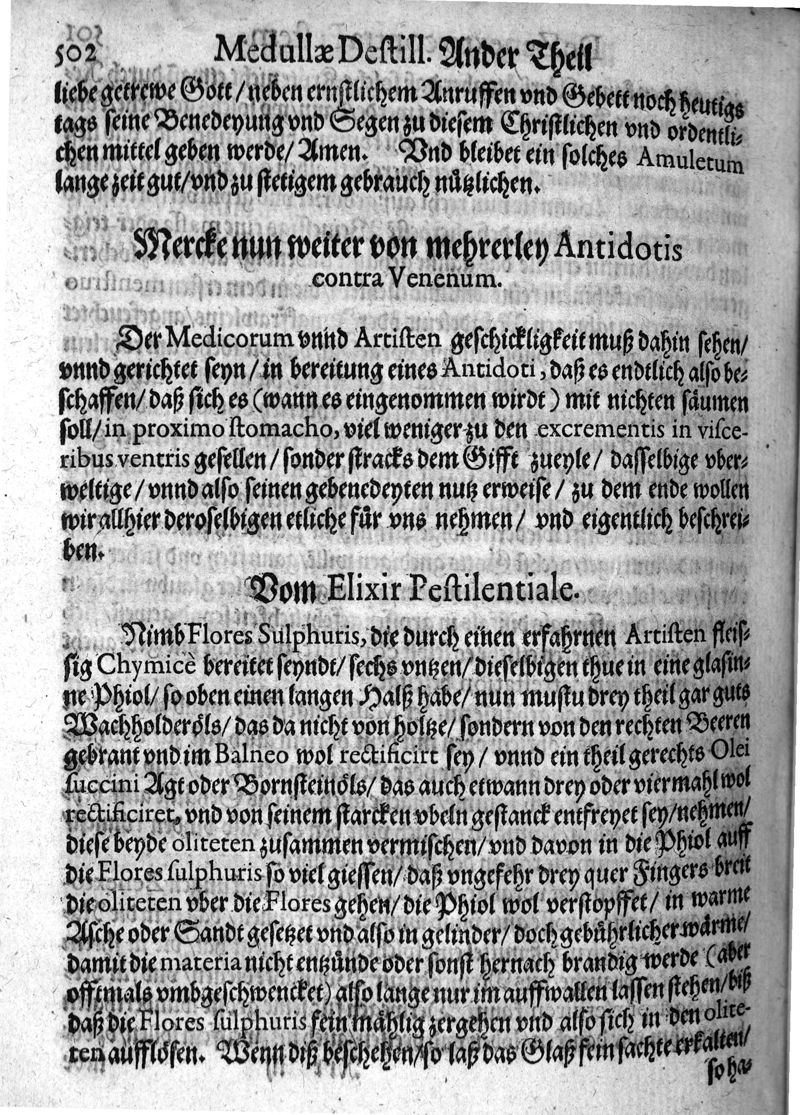 502 Medullæ Destill. Ander Theil
liebe getrewe Gott/ neben ernstlichem Anruffen vnd Gebett noch heutigs
tags seine Benedeyung vnd Segen zu diesem Christlichen vnd ordentli-
chen mittel geben werde/ Amen. Vnd bleibet ein solches Amuletum
lange zeit gut/ vnd zu stetigem gebrauch nützlichen.
Mercke nun weiter von mehrerley Antidotis
contra Venenum.
Der Medicorum vnnd Artisten geschickligkeit muß dahin sehen/
vnnd gerichtet seyn/ in bereitung eines Antidoti, daß es endtlich also be-
schaffen/ daß sich es (wann es eingenommen wirdt) mit nichten säumen
soll/ in proximo stomacho, viel weniger zu den excrementis in visce-
ribus ventris gesellen/ sonder stracks dem Gifft zueyle/ dasselbige vber-
weltige/ vnnd also seinen gebenedeyten nutz erweise/ zu dem ende wollen
wir allhier deroselbigen etliche für vns nehmen/ vnd eigentlich beschrei-
ben.
Vom Elixir Pestilentiale.
Nimb Flores Sulphuris, die durch einen erfahrnen Artisten fleis-
sig Chymicè bereitet seyndt/ sechs vntzen/ dieselbigen thue in eine glasin-
ne Phiol/ so oben einen langen Halß habe/ nun mustu drey theil gar guts
Wachholderöls/ das da nicht von holtze/ sondern von den rechten Beeren
gebrant vnd im Balneo wol rectificirt sey/ vnnd ein theil gerechts Olei
succini Agt oder Bornsteinöls/ das auch etwann drey oder vier mahl wol
rectificiret, vnd von seinem starcken vbeln gestanck entfreyet sey/ nehmen/
diese beyde oliteten zusammen vermischen/ vnd davon in die Phiol auff
die Flores sulphuris so viel giessen/ daß vngefehr drey quer Fingers breit
die oliteten vber die Flores gehen/ die Phiol wol verstopffet/ in warme
Asche oder Sandt gesetzet vnd also in gelinder/ doch gebührlicher wärme/
damit die materia nicht entzünde oder sonst hernach brandig werde (aber
offtmals vmbgeschwencket) also lange nur im auffwallen lassen stehen/ biß
daß die Flores sulphuris fein mählig zergehen vnd also sich in den olite-
ten aufflösen. Wenn diß beschehen/ so laß das Glaß fein sachte erkalten/
so ha-